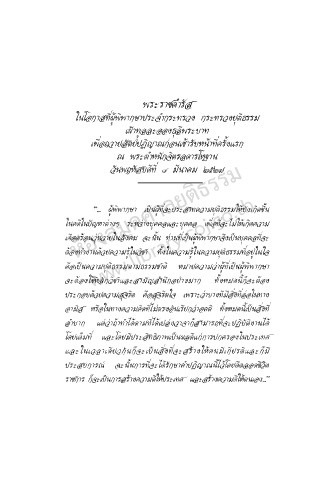 พระราชดำรัส
ในโอกาสที่ผู้พิพากษาประจำกระทรวง กระทรวงยุติธรรม
เฝ้าทูลละอองธุลีพระบาท
เพื่อถวายสัตย์ปฏิญาณก่อนเข้ารับหน้าที่ครั้งแรก
ณ พระตำหนักจิตรลดารโหฐาน
วันพฤหัสบดีที่ ๘ มีนาคม ๒๕๒๗
“... ผู้พิพากษา เป็นผู้ที่จะประสาทความยุติธรรมให้บังเกิดขึ้น
ในคดีในปัญหาต่างๆ ระหว่างบุคคลและบุคคล เพื่อที่จะไม่ให้เกิดความ
เดือดร้อนวุ่นวายในสังคม ฉะนั้น ท่านที่เป็นผู้พิพากษาจึงเป็นบุคคลที่จะ
ต้องทำงานด้วยความรู้ในวิชา ทั้งในความรู้ในความยุติธรรมที่อยู่ในใจ
คือเป็นความยุติธรรมตามธรรมชาติ หมายความว่าผู้ที่เป็นผู้พิพากษา
จะต้องใช้ และสามัญสำนึกอย่างมาก ทั้งหมดนี้ก็จะต้อง
ประกอบด้วยความสุจริต คือสุจริตใจ เพราะว่าบางทีมีสิ่งที่ล่อในทาง
อามิส หรือในทางความคิดที่ไม่ตรงอันเรียกว่าอคติ ทั้งหมดนี้เป็นสิ่งที่
ลำบาก แต่ว่าถ้าทำได้ตามที่ได้เปล่งวาจาก็สามารถที่จะปฏิบัติงานได้
โดยเต็มที่ และโดยมีประสิทธิภาพเป็นผลดีแก่การปกครองในประเทศ
และในเวลาเดียวกันก็จะเป็นสิ่งที่จะสร้างให้ตนมีเกียรติและก็มี
ประสบการณ์ ฉะนั้นการที่จะได้รักษาคำปฏิญาณนี้ไว้โดยตลอดชีวิต
ราชการ ก็จะเป็นการสร้างความดีให้ประเทศ และสร้างความดีให้ตนเอง...”